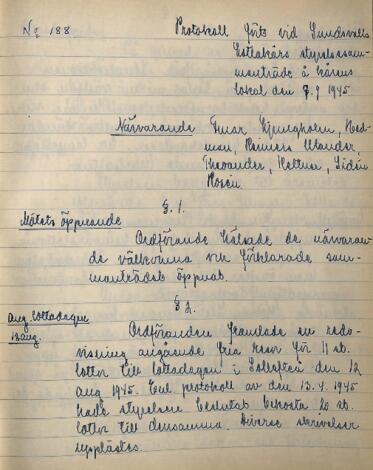 Nr 188.
Protokoll förts vid Sundsvalls
Lottakårs styrelsesam-
manträde å kårens
lokal den 7.9 1945
Närvarande
§.1.
Mötets öppnande
Ordförande hälsade de närvaran-
de välkomna och förklarade sam-
manträdet öppnat.
§ 2.
ang. Lottadagen
12 aug.
Ordföranden framlade en redo-
visning angående fria resor för 11 st.
lotter till Lottadagen i Sollefteå den 12
aug 1945. Enl. protokoll av den 13.4.1945
hade styrelsen beslutat bekosta 20 st.
lotter till densamma. Diverse skrivelser
upplästes.